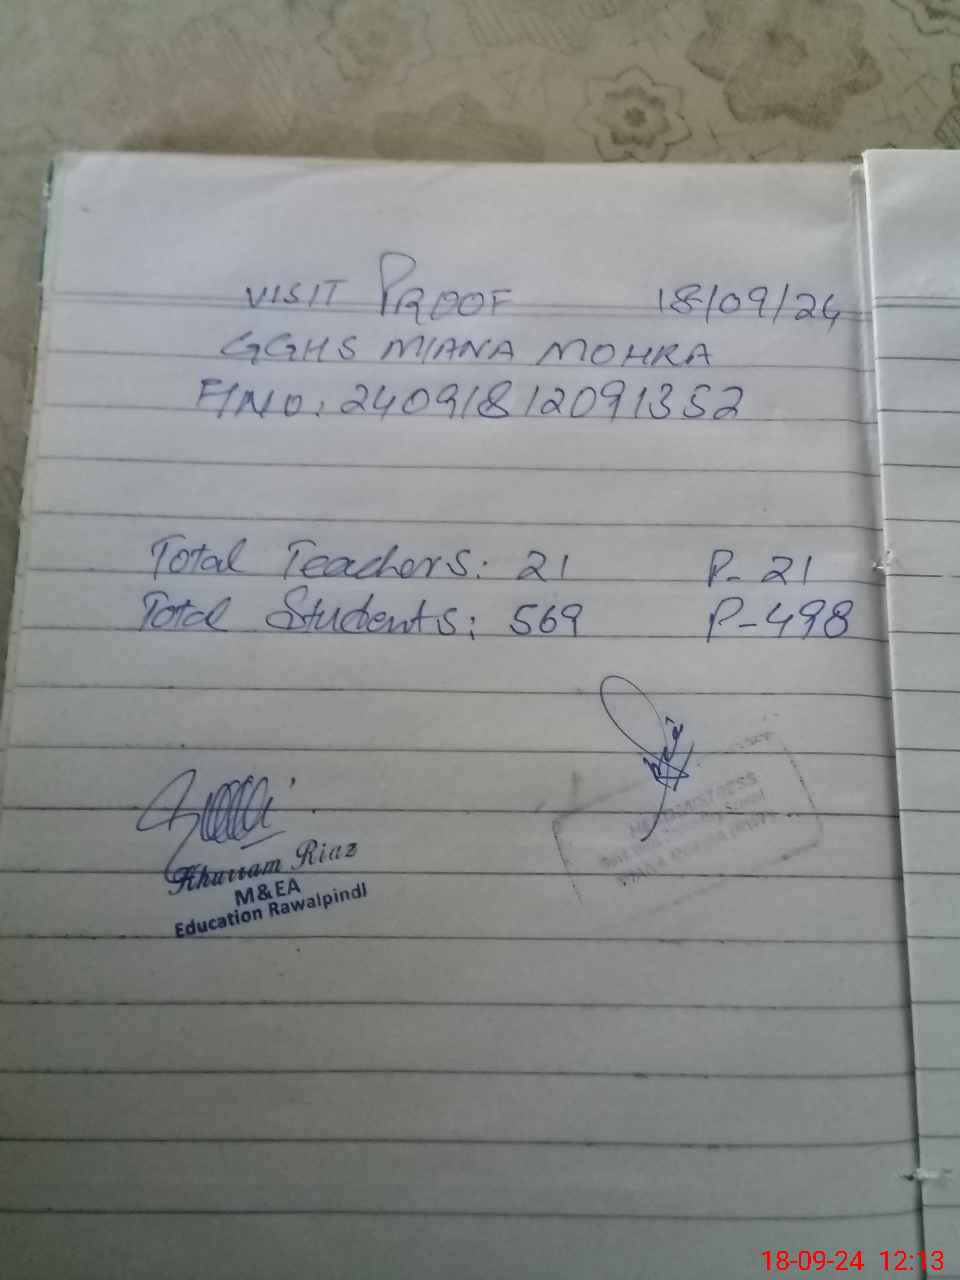 VISIT PROOF 18/09/24
GGHS MIANA MOHRA
F/NO. 24091812091352
Total Teachers: 21 P- 21
Total Students: 569 P-498
Khurram Riaz
M&EA
Education Rawalpindi
HEADMISTRESS
18-09-24 12:13